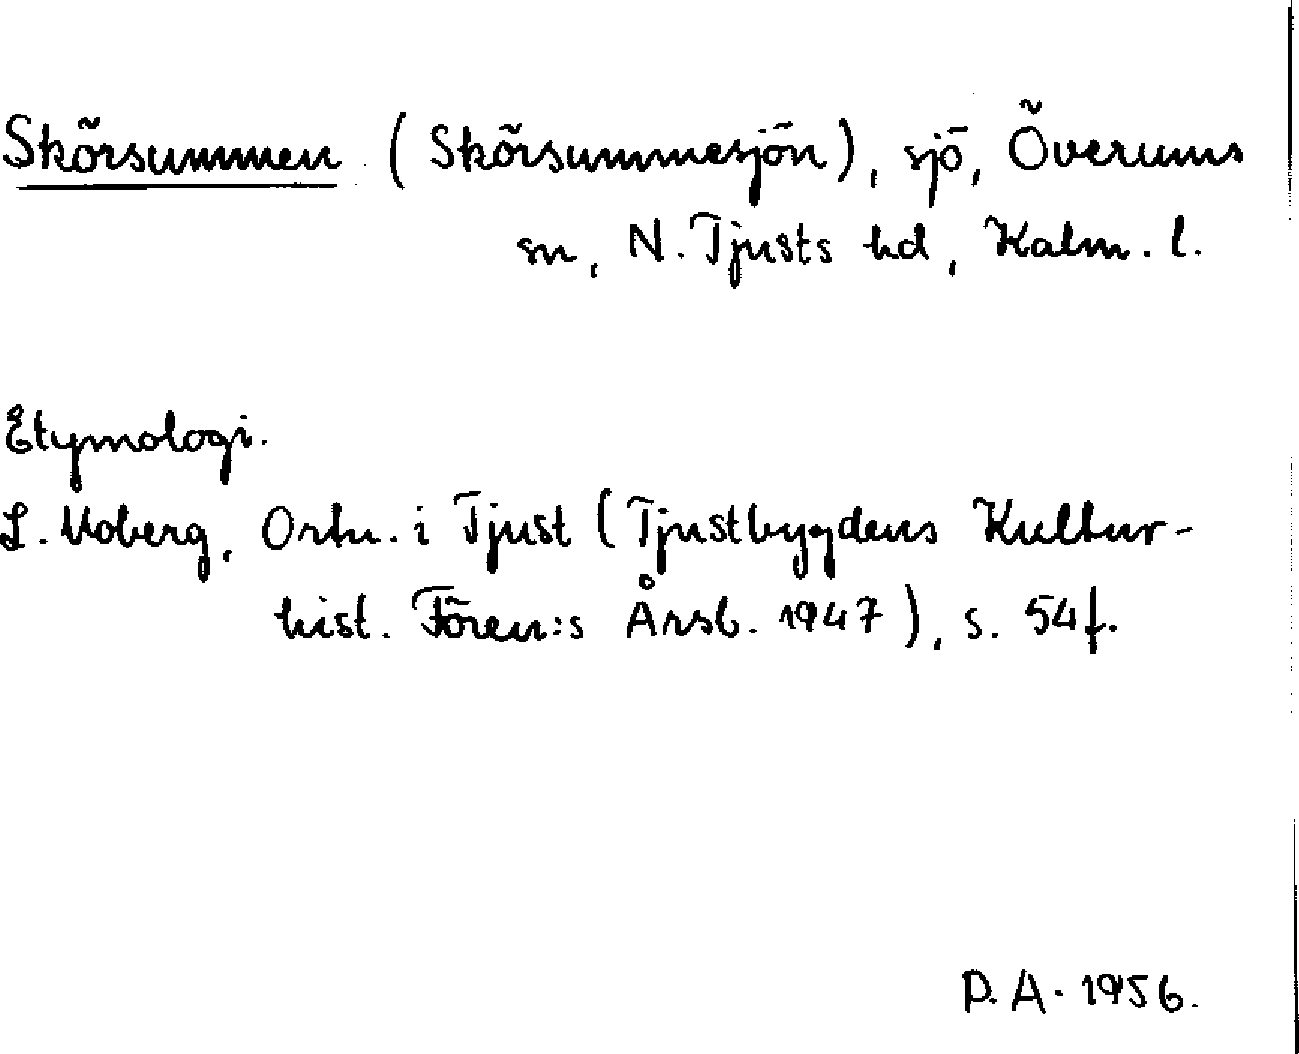 Skörsummen (Skörsummesjön), sjö, Överums
sn, N. Tjusts hd, Kalm. l.
Etymologi.
L. Moberg, Ortn. i Tjust (Tjustbygdens Kultur-
hist. Fören:s Årsb. 1947), s. 54f.
P. A. 1956.